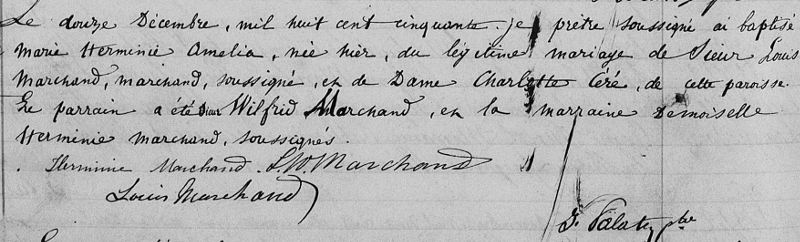 Le douze Décembre, mil huit cent cinquante. je prêtre soussigné ai baptisé
Marie Herminie Amelia, née hier, du légitime mariage de Sieur Louis
Marchand, marchand, soussigné, et de Dame Charlotte Céré, de cette paroisse.
Le parrain a été Sieur Wilfrid Marchand, et la marraine Demoiselle
Herminie marchand, soussignés.
Hermine Marchand L.W. Marchand
Louis Marchand
ptre